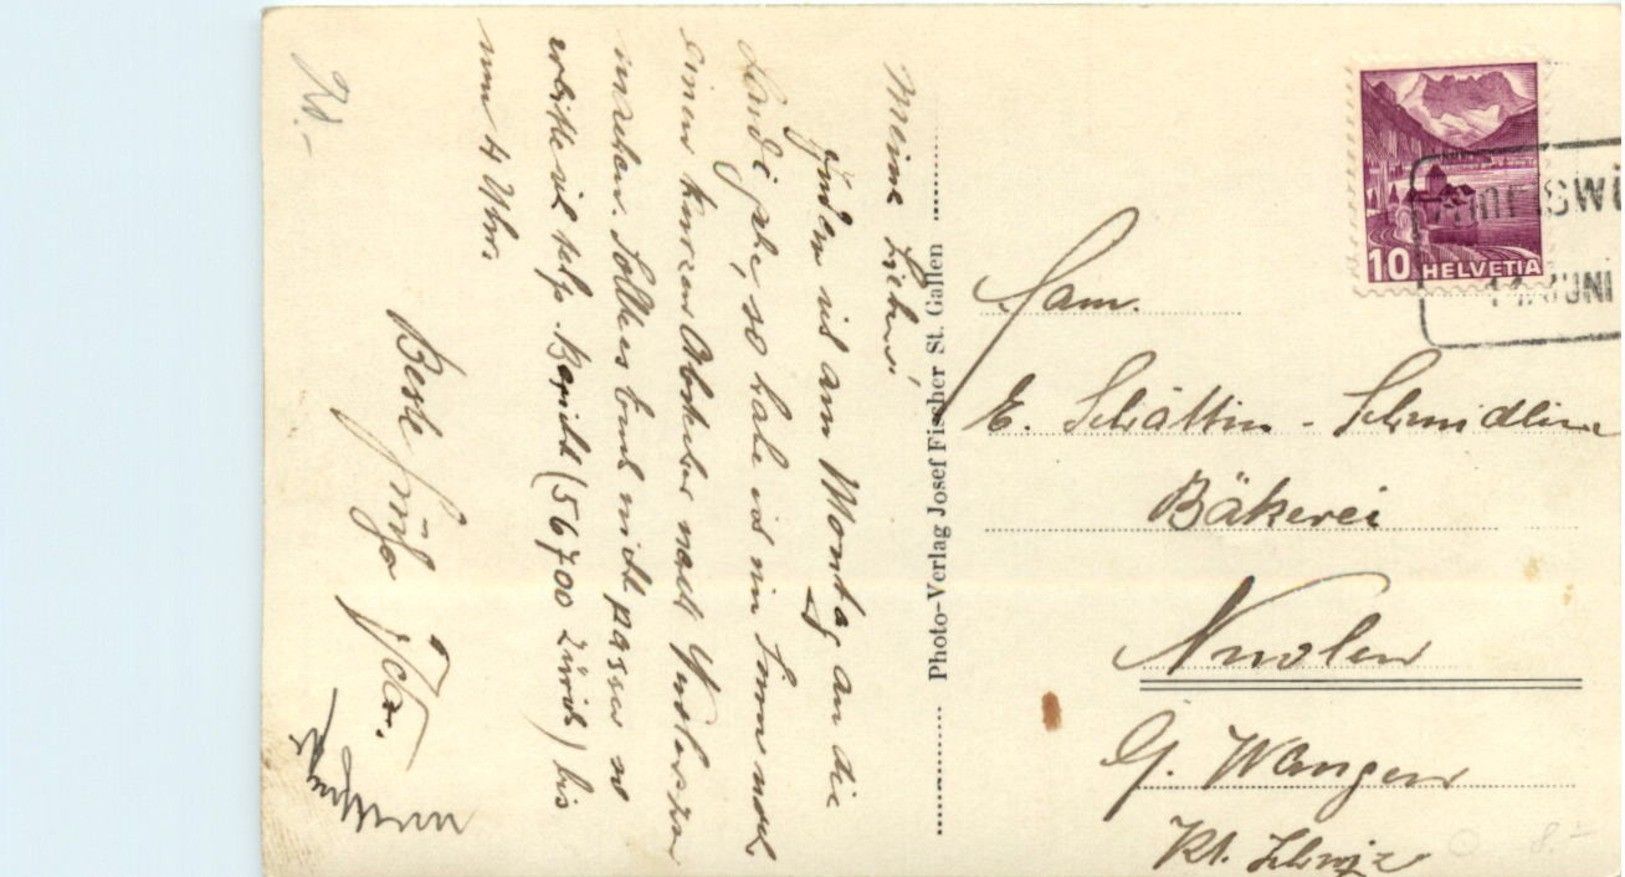 Meine Lieben!
Indem ich am Montag an die
Landi gehe, so habe ich im Sinn noch
einen kurzen Abstecher nach Nuolen zu
machen. Sollte es Euch nicht passen so
erbitte ich telf. Bericht (56700 Zürich) bis
um 4 Uhr.
Beste Grüsse
Photo-Verlag Josef Fischer St. Gallen
10 HELVETIA
JUNI
Fam.
E. Schättin - Schmidlin
Bäkerei
Nuolen
G. Wangen
Kt. Schwyz
8.-